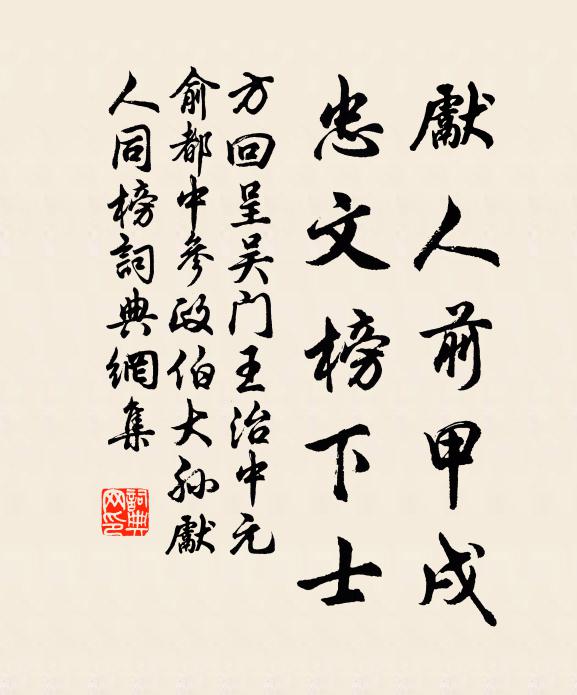 獻人前甲戌
忠文榜下士
方回呈吴门王治中元
俞都中參政伯大孙獻
人同榜詞典網集
詞典网印